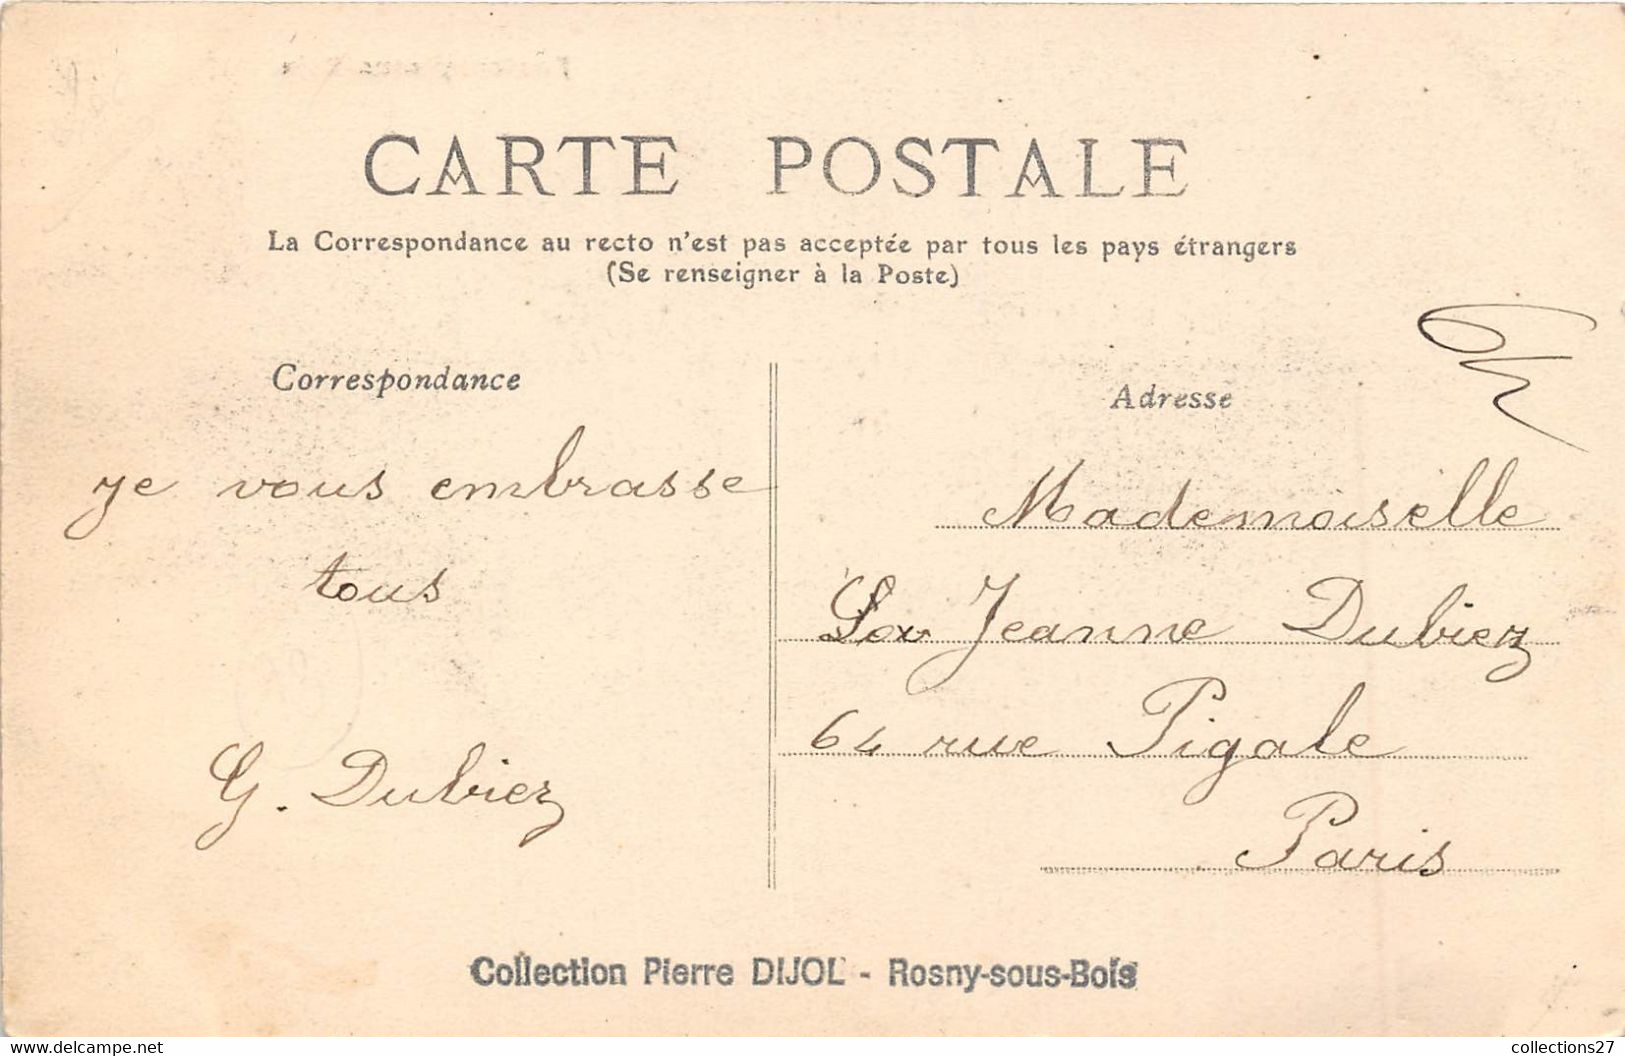 CARTE POSTALE
La Correspondance au recto n'est pas acceptée par tous les pays étrangers
(Se renseigner à la Poste)
Correspondance
je vous embrasse
tous
G. Dubiez
Adresse
Mademoiselle
Jeanne Dubiez
64 rue Pigale
Paris
Collection Pierre DIJOL - Rosny-sous-Bois
www.delcampe.net
collections27